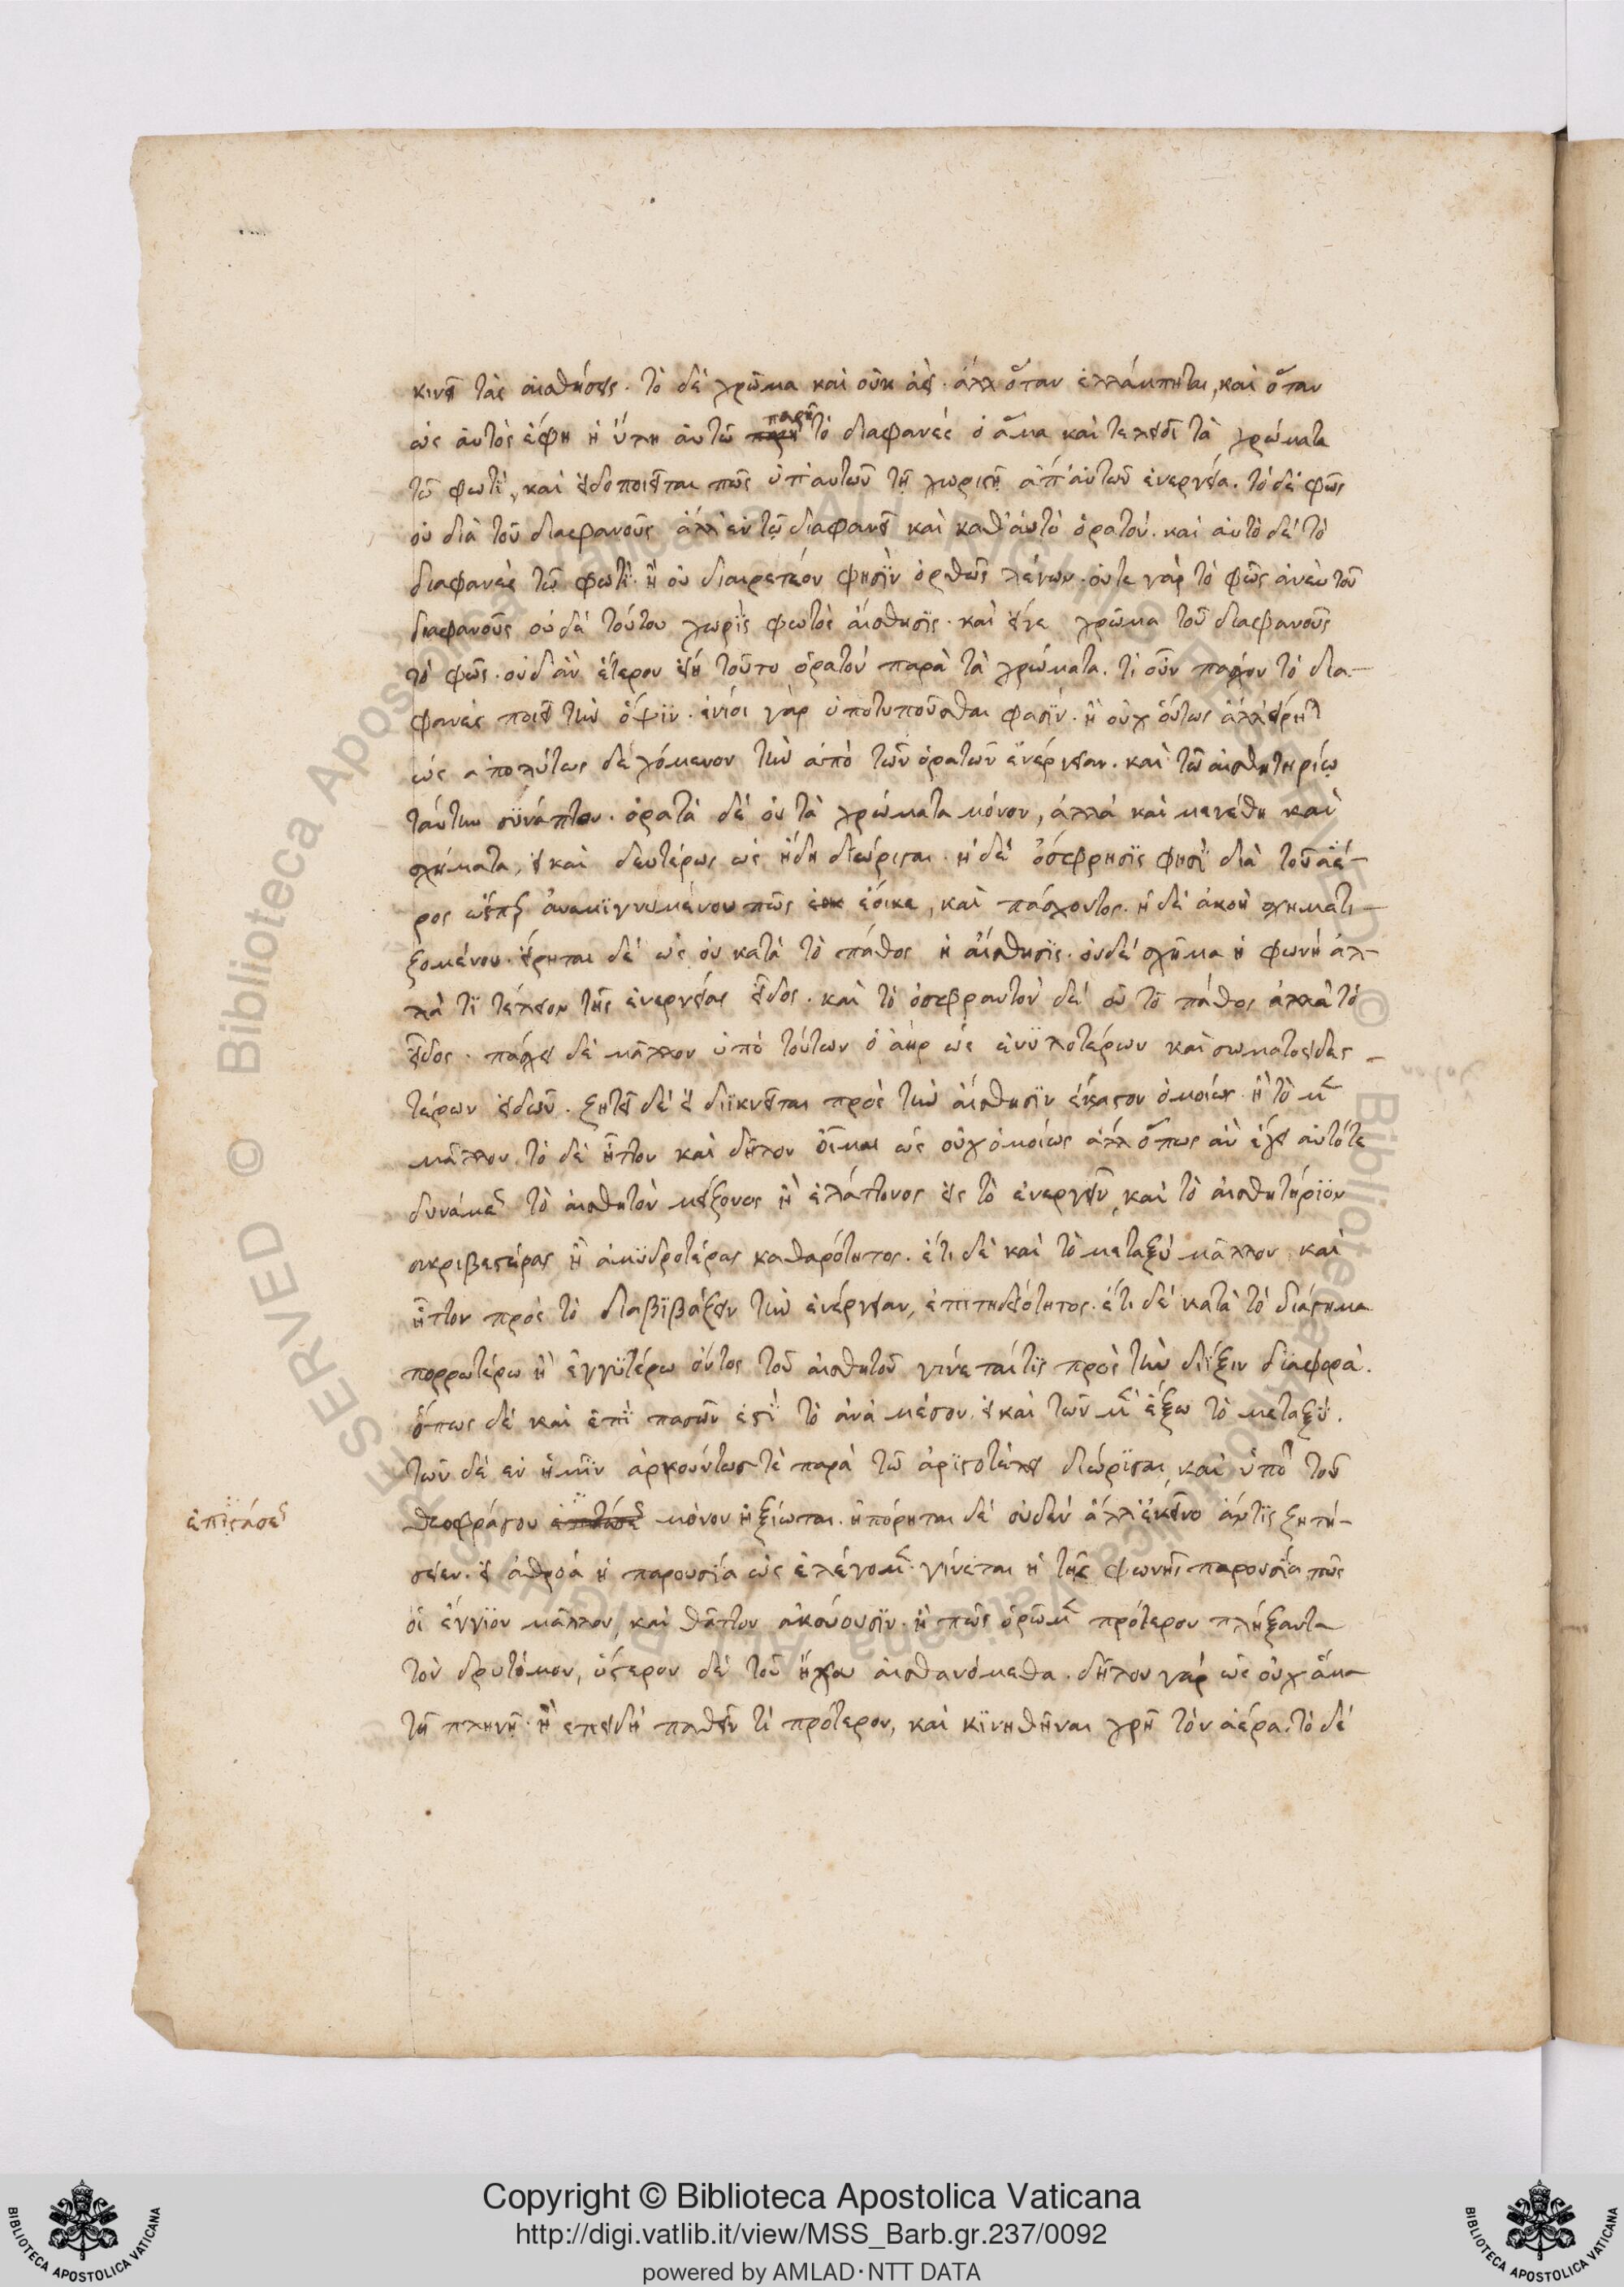 κινεῖ τὰς αἰσθήσεις. τὸ δὲ χρῶμα καὶ οὐκ ἀεὶ. ἀλλ ὅταν ἐλλάμπηται, καὶ ὅταν
ὡς αὐτὸς ἔφη ἡ ὕλη αὐτῶ παρῆ τὸ διαφανές ὁ ἅμα καὶ τελειοῖ τὰ χρώματα
τῶ φωτὶ, καὶ εἰδοποιεῖται πῶς ὑπ αὐτῶν τῇ χωριστῇ ἀπ αὐτῶν ἐνεργεία. τὸ δὲ φῶς
οὐ διὰ τοῦ διαφανοῦς ἀλλ ἐν τῷ διαφανεῖ καὶ καθ αὑτὸ ὁρατόν. καὶ αὐτὸ δὲ τὸ
διαφανὲς τῷ φωτὶ. ἢ οὐ διαιρετέον φησὶν ὀρθῶς λέγων. οὔτε γὰρ τὸ φῶς ἄνευ τοῦ
διαφανοῦς οὐδὲ τούτου χωρὶς φωτὸς αἴσθησις. καὶ εἴγε χρῶμα τοῦ διαφανοῦς
τὸ φῶς. οὐδ ἂν ἕτερον εἴη τοῦτο ὁρατόν παρὰ τὰ χρώματα. τί οὖν πάσχον τὸ δια-
φανὲς ποιεῖ τὴν ὄψιν. ἔνιοι γὰρ ὑποτυποῦσθαι φασίν. ἢ οὐχ οὕτως ἀλλ εἴρηται
ὡς ἀπολύτως δεχόμενον τὴν ἀπὸ τῶν ὁρατῶν ἐνέργειαν. καὶ τῶ αἰσθητηρίῳ
ταύτην συνάπτον. ὁρατὰ δὲ οὐ τὰ χρώματα μόνον, ἀλλὰ καὶ μεγέθη καὶ
σχήματα, εἰ καὶ δευτέρως ὡς ἤδη διώρισται. ἡ δὲ ὄσφρησις φησὶ διὰ τοῦ ἀέ-
ρος ὥσπερ ἀναμιγνυμένου πῶς ἔοικε, καὶ πάσχοντος. ἡ δὲ ἀκοὴ σχηματι-
ζομένου. εἴρηται δὲ ὡς οὐ κατὰ τὸ πάθος ἡ αἴσθησις. οὐδὲ σχῆμα ἡ φωνὴ ἀλ-
λά τι τέλειον τῆς ἐνεργείας εἶδος. καὶ τὸ ὀσφραντὸν δὲ οὐ τὸ πάθος ἀλλὰ τὸ
εἶδος. πάσχει δὲ μᾶλλον ὑπὸ τούτων ὁ ἀὴρ ὡς ἐνυλοτέρων καὶ σωματοειδες-
τέρων εἰδῶν. ζητεῖ δὲ εἰ διϊκνεῖται πρὸς τὴν αἴσθησιν ἕκαστον ὁμοίως ἢ τὸ μὲν
μᾶλλον. τὸ δὲ ἧττον καὶ δῆλον οἶμαι ὡς οὐχ ὁμοίως ἀλλ ὅπως ἂν ἔχει αὐτότε
δυνάμεως τὸ αἰσθητὸν μείζονος ἢ ἐλάττονος εἰς τὸ ἐνεργεῖν, καὶ τὸ αἰσθητήριον
ἀκριβεστέρας ἢ ἀμυδροτέρας καθαρότητος. ἔτι δὲ καὶ τὸ μεταξὺ μᾶλλον, καὶ
ἧττον πρὸς τὸ διαβιβάζειν τὴν ἐνέργειαν, ἐπιτηδειότητος. ἔτι δὲ κατὰ τὸ διάστημα
πορρωτέρω ἢ ἐγγυτέρω ὄντος τοῦ αἰσθητοῦ γίνεται τὶς πρὸς τὴν διΐξιν διαφορά.
ὅπως δὲ καὶ ἐπὶ πασῶν ἐστὶ τὸ ἀνὰ μέσον. εἰ καὶ τῶν μὲν ἔξω τὸ μεταξύ.
τῶν δὲ ἐν ἡμῖν ἀρκούντωστε παρὰ τῶ ἀριστοτέλει διώρισται, καὶ ὑπὸ τοῦ
θεοφράστου μόνον ἠξίωται. ἠπόρηται δὲ οὐδὲν ἀλλ ἐκεῖνο ἄντις ζητή-
ἐπιστάσεως
σειεν. εἰ ἀθρόα ἡ παρουσία ὡς ἐλέγομεν γίνεται ἡ τῆς φωνῆς παρουσία πῶς
οἱ ἔγγιον μᾶλλον, καὶ θᾶττον ἀκούουσιν. ἢ πῶς ὁρῶμεν πρότερον πλήξαντα
τὸν δρυτόμον, ὕστερον δὲ τοῦ ἤχου αἰσθανόμεθα. δῆλον γὰρ ὡς οὐχ ἅμα
τῇ πληγῇ. ἢ ἐπειδὴ παθεῖν τί πρότερον, καὶ κινηθῆναι χρὴ τὸν ἀέρα. τὸ δὲ
Copyright © Biblioteca Apostolica Vaticana
http://digi.vatlib.it/view/MSS_Barb.gr.237/0092
powered by AMLAD·NTT DATA
BIBLIOTECA APOSTOLICA VATICANA
BIBLIOTECA APOSTOLICA VATICANA